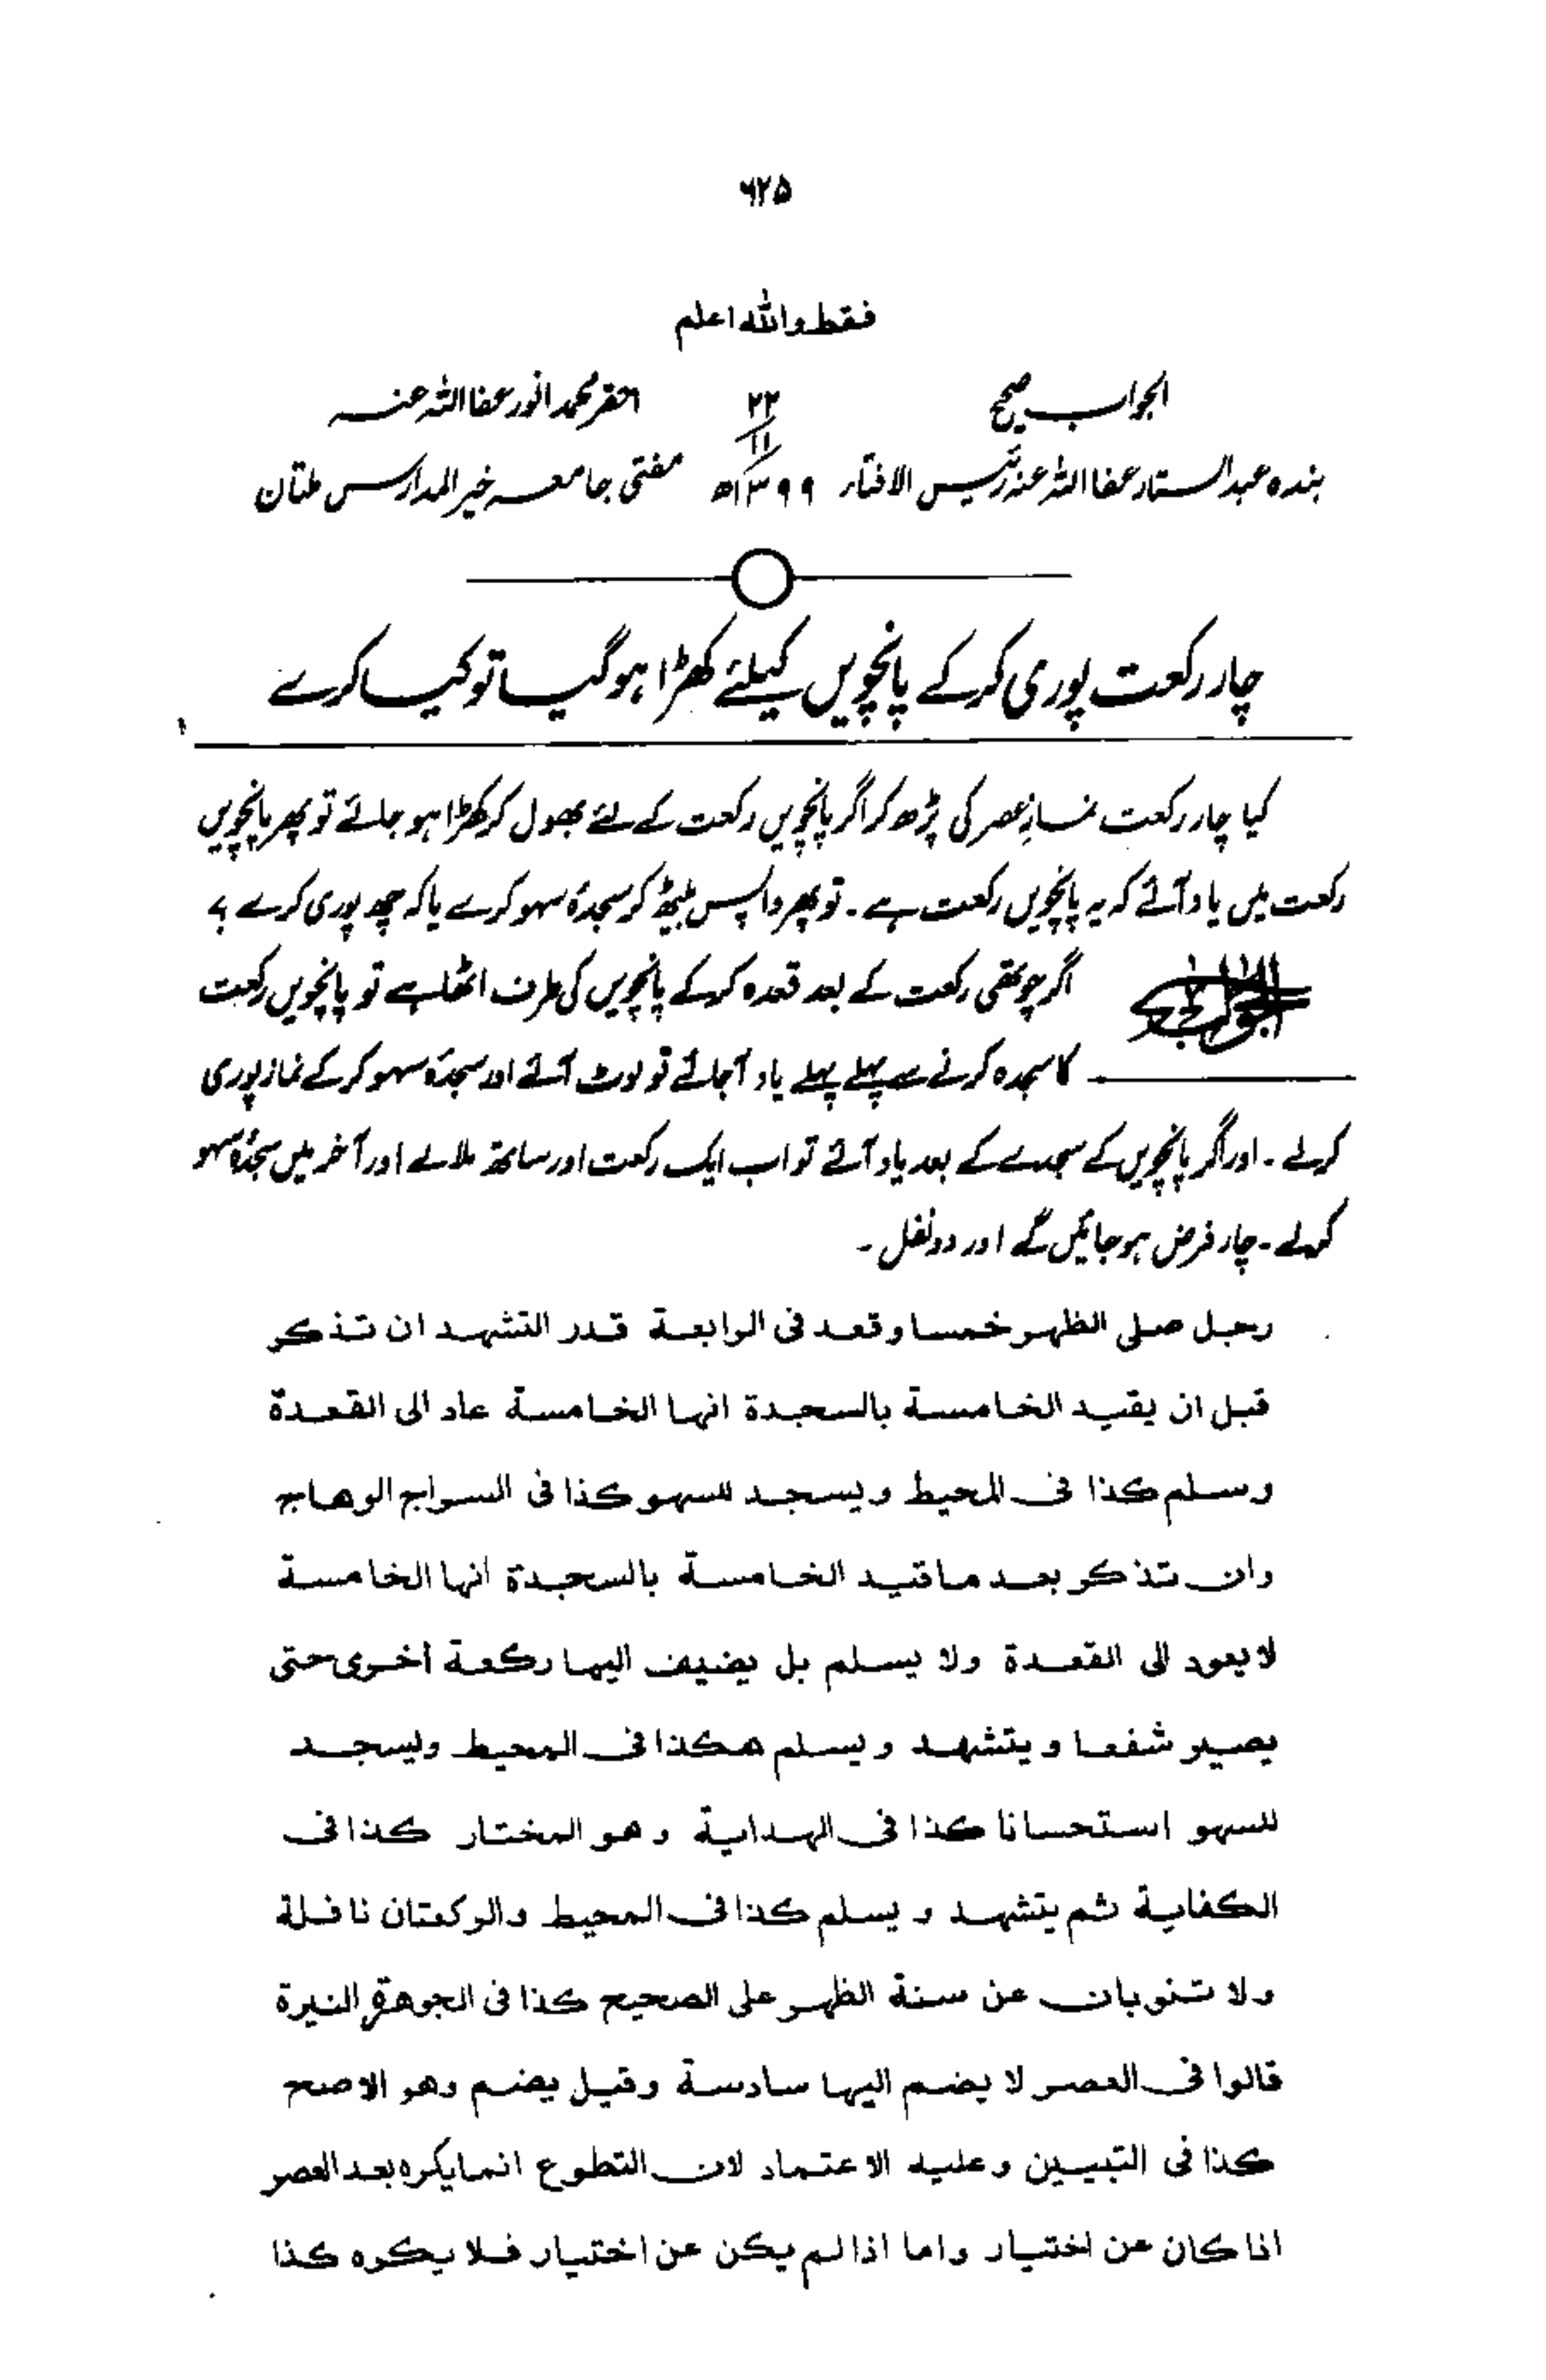 ۶۲۵
فقط واللہ اعلم
الجواب صحیح ۲۲ احقر محمد انور عفا اللہ عنہ
۱۱
بندہ عبد الستار عفا اللہ عنہ رئیس الافتاء ۱۳۹۹ھ مفتی جامعہ خیر المدارس ملتان
چار رکعت پوری کرکے پانچویں کیلئے کھڑا ہوگیا تو کیا کرے
کیا چار رکعت نماز عصر کی پڑھ کر اگر پانچویں رکعت کے لئے بھول کر کھڑا ہو جائے تو پھر پانچویں
رکعت میں یاد آئے کہ یہ پانچویں رکعت ہے ۔ تو پھر واپس بیٹھ کر سجدۂ سہو کرے یا کہ چھ پوری کرے ؟
الجواب اگر چوتھی رکعت کے بعد قعدہ کرکے پانچویں کی طرف اٹھا ہے تو پانچویں رکعت
کا سجدہ کرنے سے پہلے پہلے یاد آجائے تو لوٹ آئے اور سجدۂ سہو کرکے نماز پوری
کرلے ۔ اور اگر پانچویں کے سجدے کے بعد یاد آئے تو اب ایک رکعت اور ساتھ ملالے اور آخر میں سجدۂ سہو
کرلے ۔ چار فرض ہو جائیں گے اور دو نفل ۔
رجل صلی الظهر خمسا وقعد فی الرابعة قدر التشهد ان تذکر
قبل ان یقید الخامسة بالسجدة انها الخامسة عاد الی القعدة
وسلم کذا فی المحیط ویسجد للسهو کذا فی السراج الوهاج
وان تذکر بعد ما قید الخامسة بالسجدة انها الخامسة
لا یعود الی القعدة ولا یسلم بل یضیف الیها رکعة أخری حتی
یصیر شفعا ویتشهد ویسلم هکذا فی المحیط ویسجد
للسهو استحسانا کذا فی الهدایة وهو المختار کذا فی
الکفایة ثم یتشهد ویسلم کذا فی المحیط والرکعتان نافلة
ولا تنوبان عن سنة الظهر علی الصحیح کذا فی الجوهرة النیرة
قالوا فی العصر لا یضم الیها سادسة وقیل یضم وهو الاصح
کذا فی التبیین وعلیه الاعتماد لان التطوع انما یکره بعد العصر
اذا کان عن اختیار واما اذا لم یکن عن اختیار فلا یکره کذا